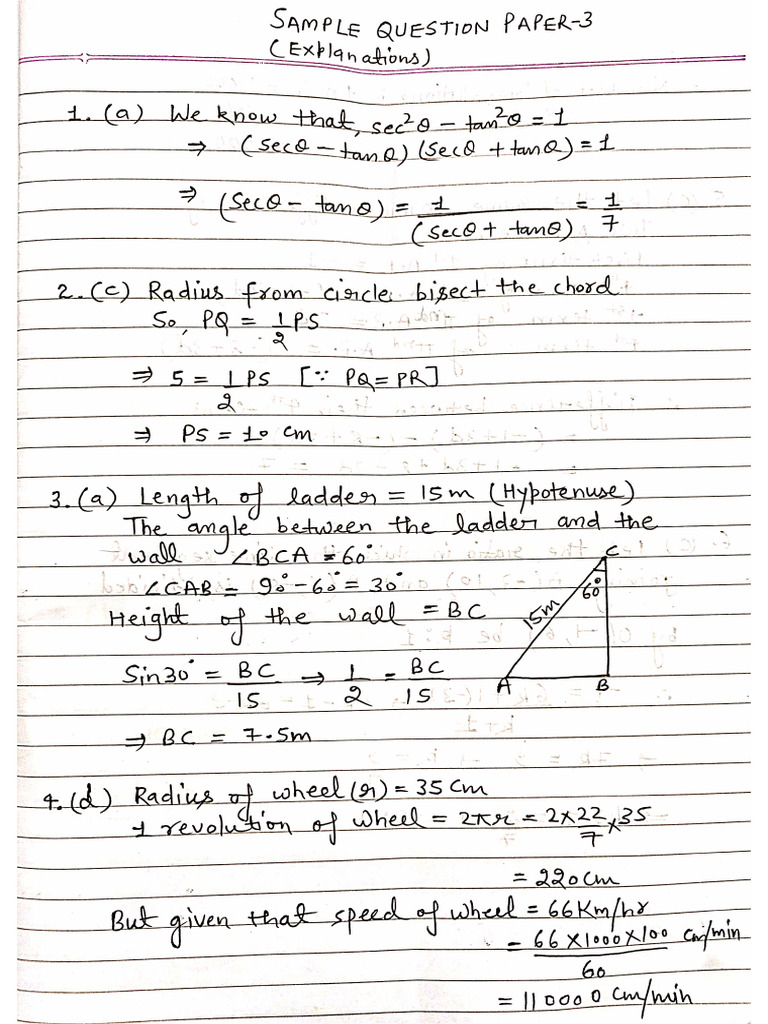 SAMPLE QUESTION PAPER-3
(Explanations)
1. (a) We know that, sec²θ − tan²θ = 1
⇒ (secθ − tanθ) (secθ + tanθ) = 1
⇒ (secθ − tanθ) = 1/(secθ + tanθ) = 1/7
2. (c) Radius from circle bisect the chord
So, PQ = 1/2 PS
⇒ 5 = 1/2 PS [∵ PQ = PR]
⇒ PS = 10 cm
3. (a) Length of ladder = 15m (Hypotenuse)
The angle between the ladder and the
wall ∠BCA = 60°
∠CAB = 90° − 60° = 30°
Height of the wall = BC
Sin30° = BC/15 → 1/2 = BC/15
⇒ BC = 7.5m
C
60°
15m
A
B
4. (d) Radius of wheel (r) = 35 Cm
1 revolution of wheel = 2πr = 2×22/7×35
= 220 cm
But given that speed of wheel = 66 Km/hr
= 66×1000×100/60 cm/min
= 110000 cm/min